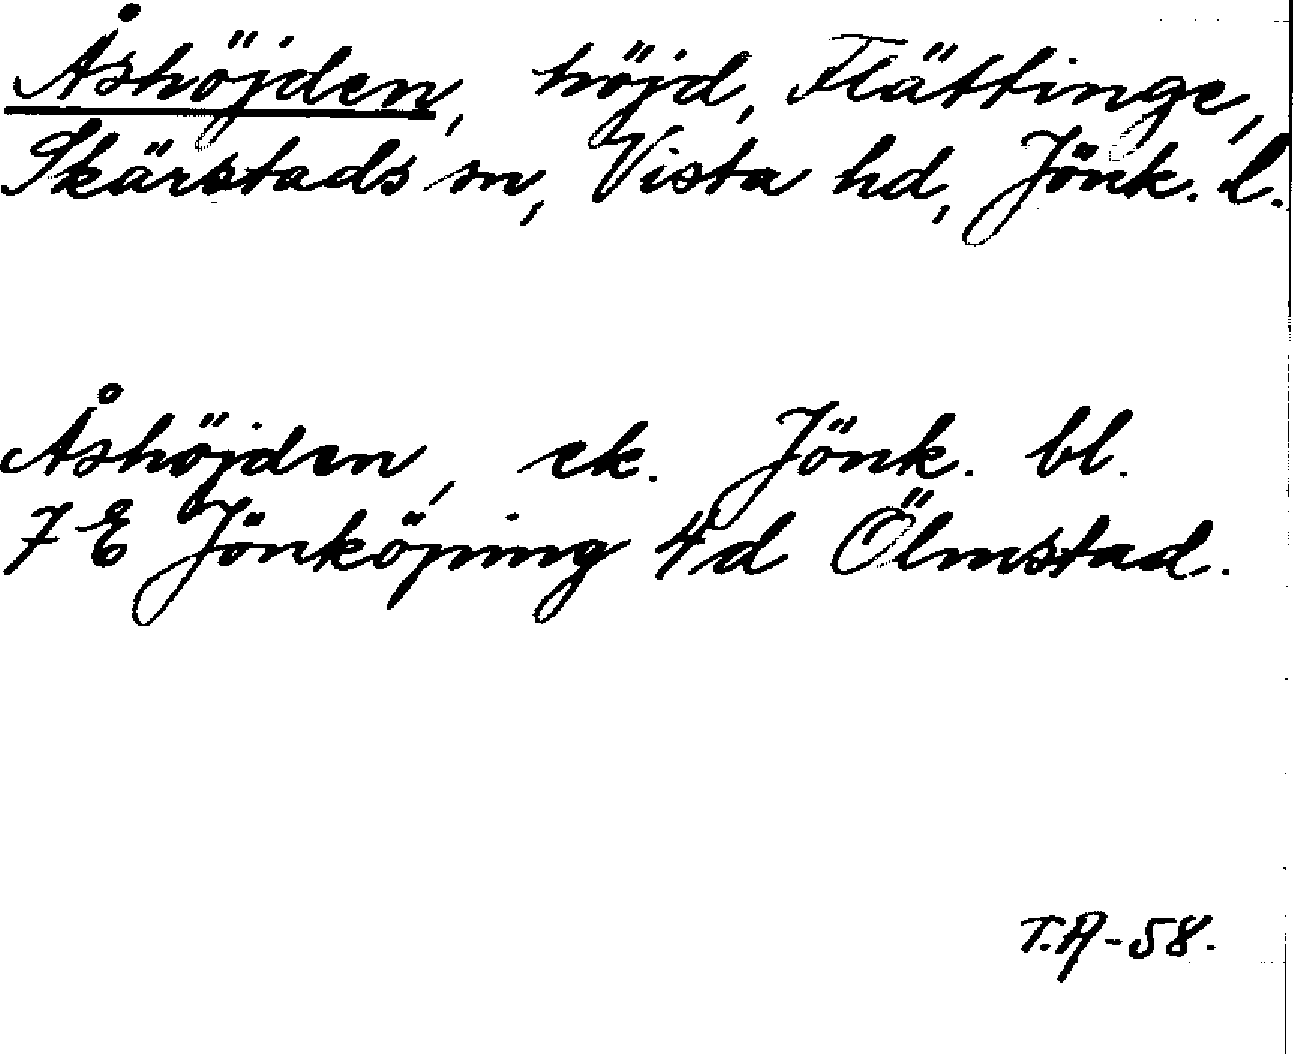 Åshöjden, höjd, Flättinge,
Skärstads sn, Vista hd, Jönk. l.
Åshöjden, ek. Jönk. bl.
7 E Jönköping 4d Ölmstad.
T.A-58.